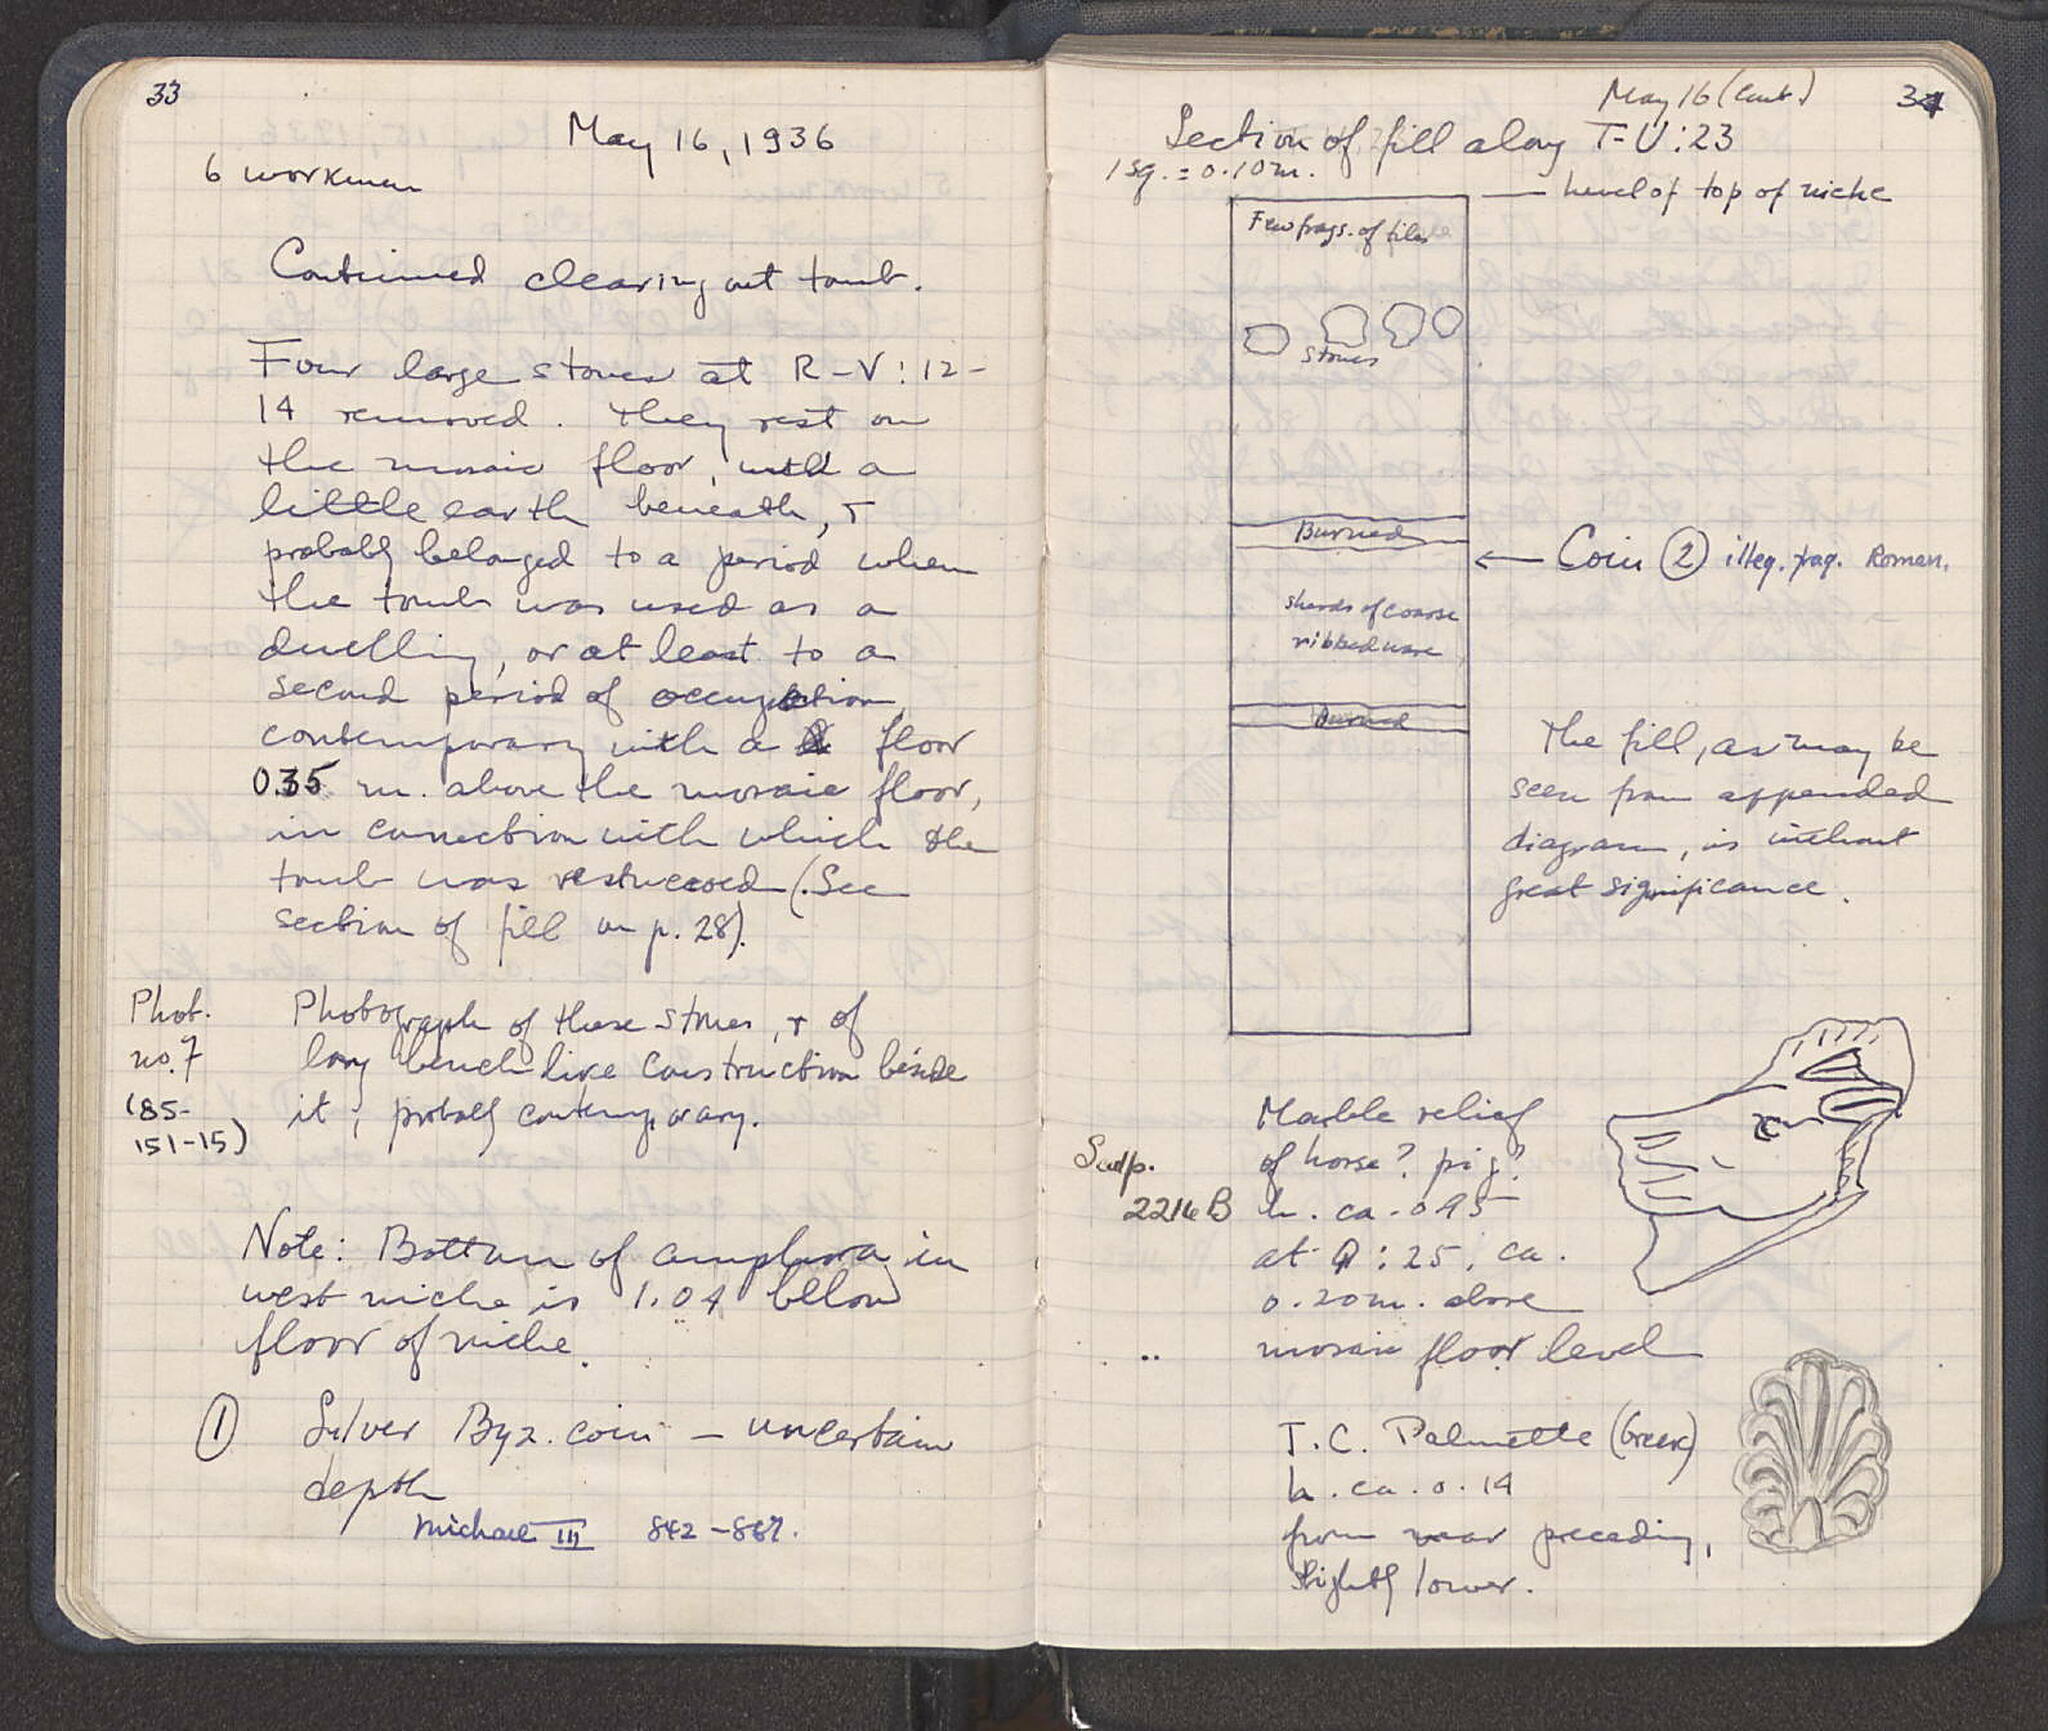 33
May 16, 1936
6 workmen
Continued clearing out tomb.
Four large stones at R-V:12-
14 removed. They rest on
the mosaic floor, with a
little earth beneath, +
probably belonged to a period when
the tomb was used as a
dwelling, or at least to a
second period of occupation,
contemporary with a floor
0.35 m. above the mosaic floor,
in connection with which the
tomb was restuccoed (See
section of fill on p. 28).
Phot.
no. 7
(85-
151-15)
Photograph of these stones, + of
long bench-like construction beside
it; probably contemporary.
Note: Bottom of amphora in
west niche is 1.04 below
floor of niche.
1 Silver Byz. coin – uncertain
depth
Michael III 842-867.
May 16 (cont.) 34
Section of fill along T-U:23
1 sq. = 0.10m.
Level of top of niche
Few frags. of tiles
stones
Burned
Coin 2 illeg. frag. Roman.
sherds of coarse
ribbed ware
Burned
The fill, as may be
seen from appended
diagram, is without
great significance.
Sculp.
2216 B
Marble relief
of horse? pig?
h. ca.
at Q:25, ca.
0.20m. above
mosaic floor level
T.C. Palmette (Greek)
h. ca. 0.14
from near preceding,
slightly lower.